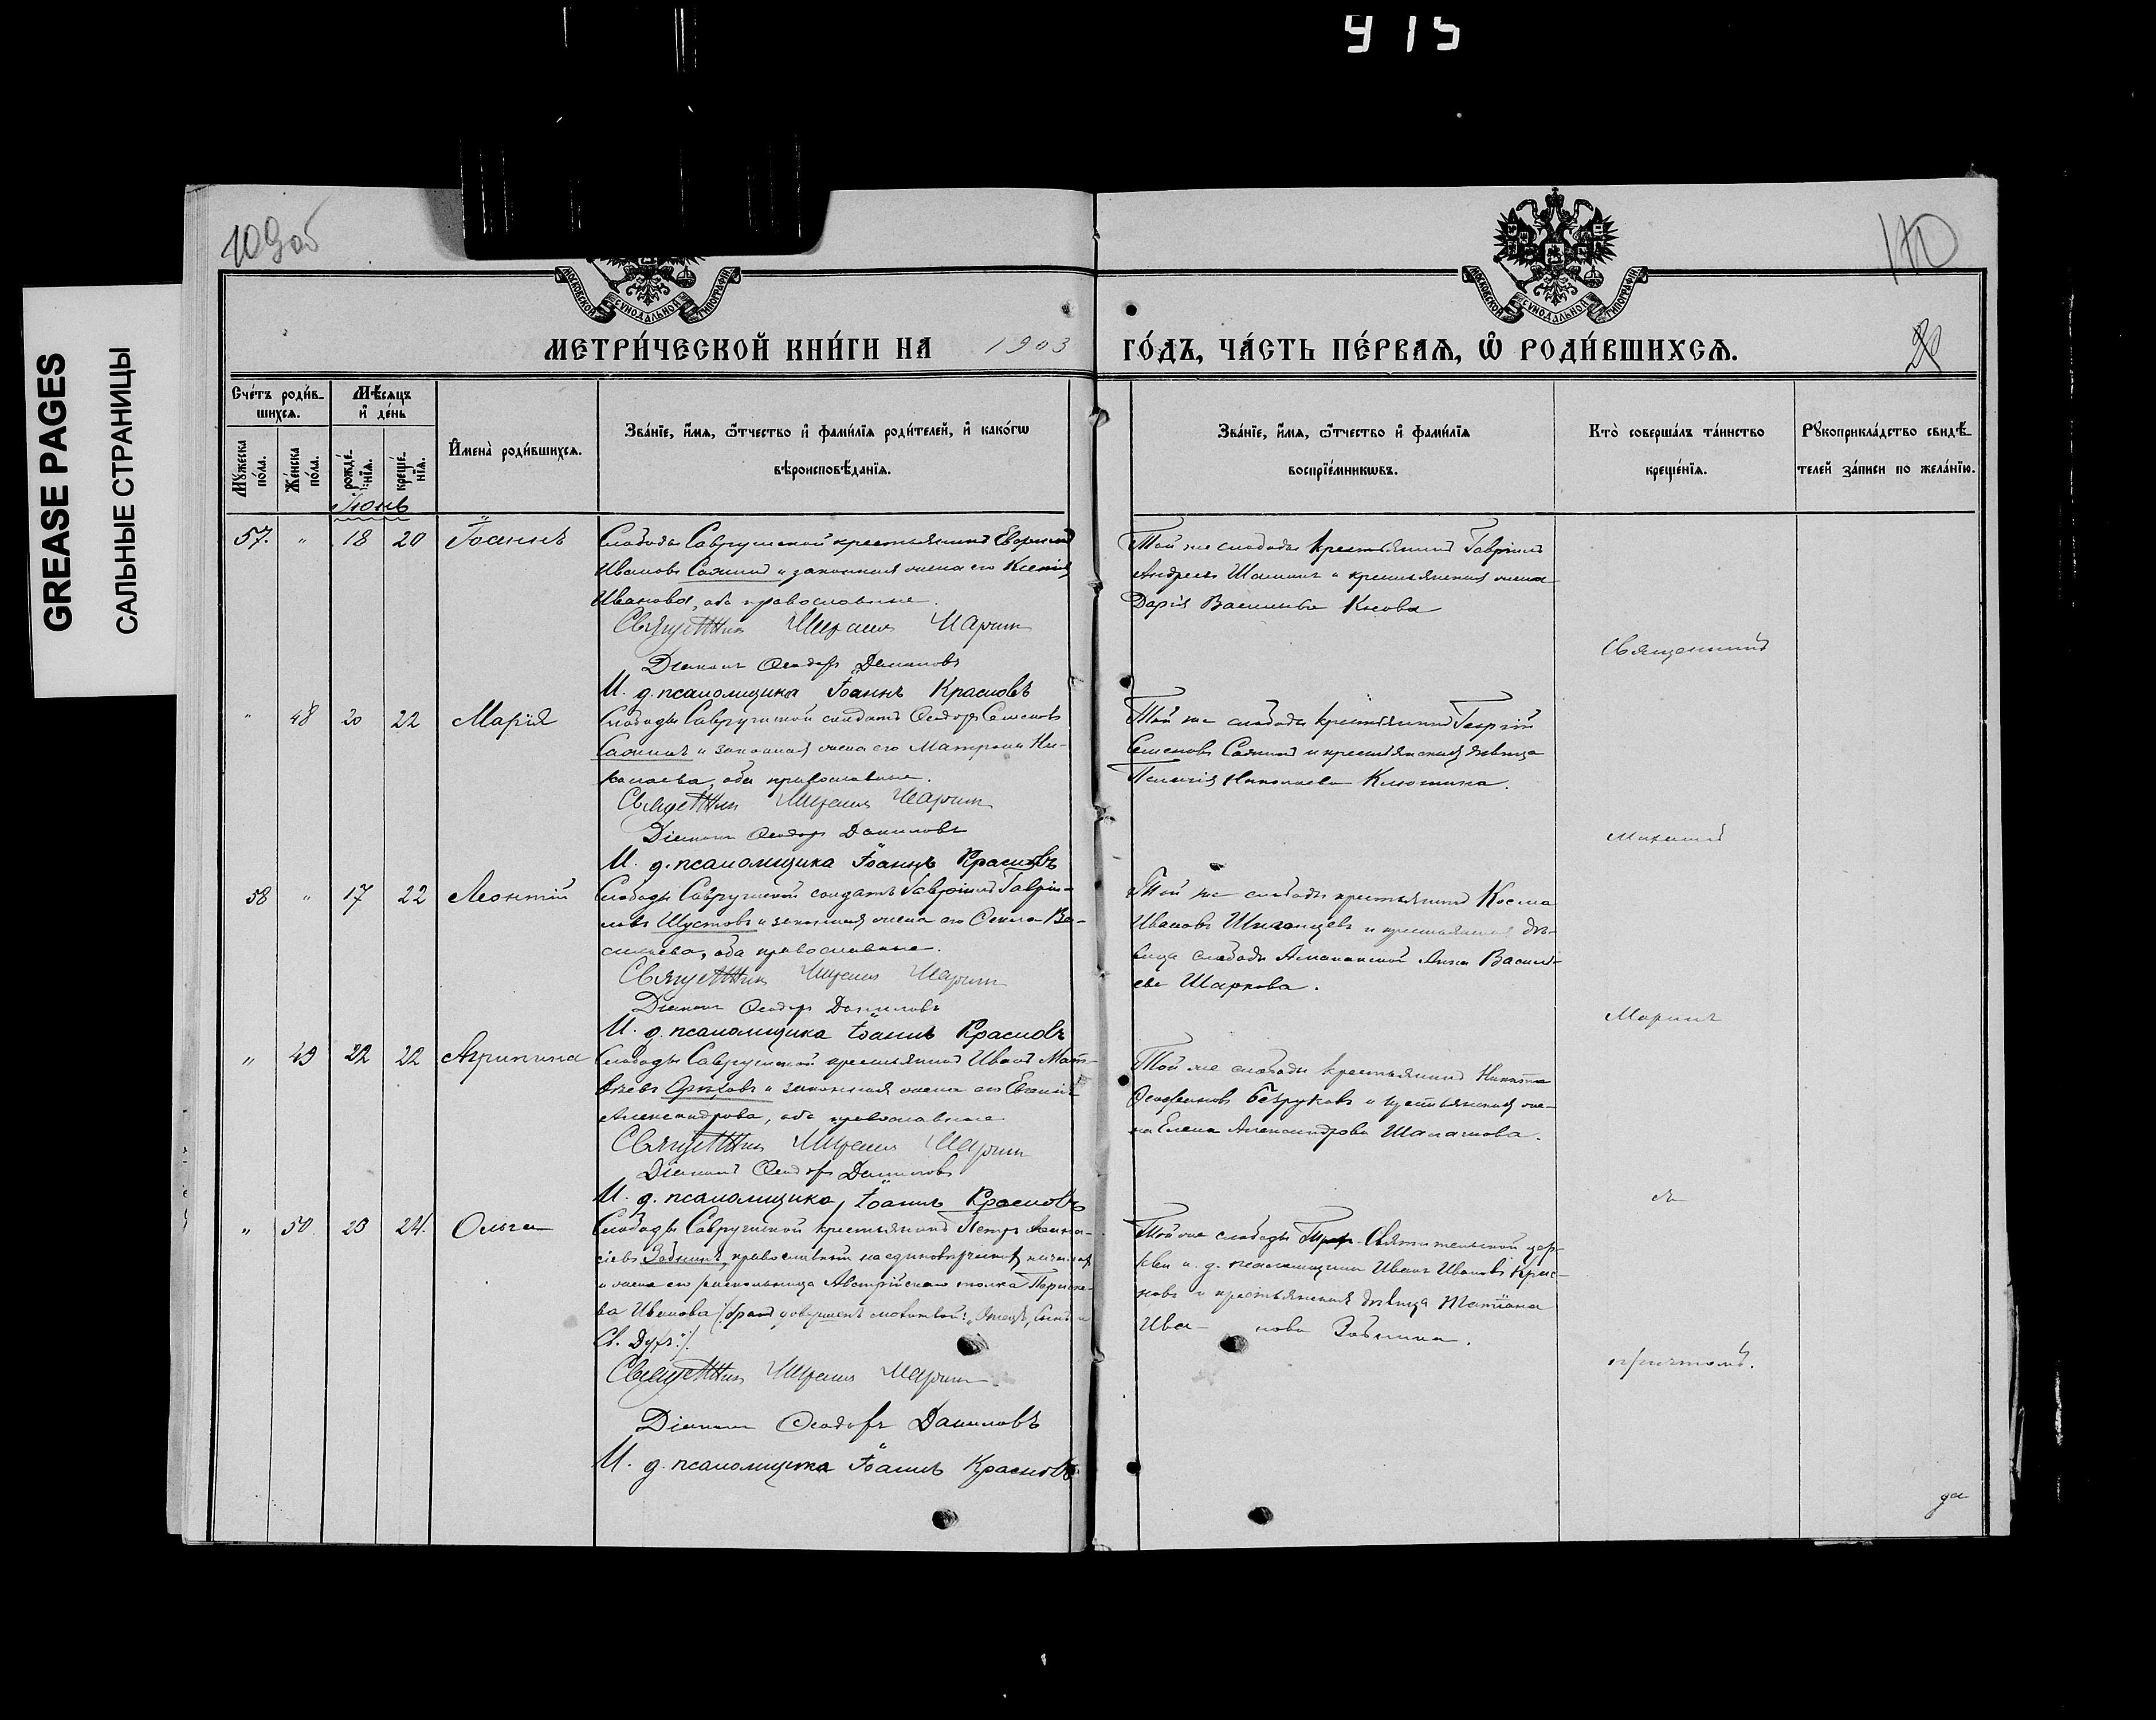 915
GREASE PAGES
САЛЬНЫЕ СТРАНИЦЫ
109об
110
МОСКОВСКОЙ СУНОДАЛЬНОЙ ТИПОГРАФІИ
МОСКОВСКОЙ СУНОДАЛЬНОЙ ТИПОГРАФІИ
МЕТРИ́ЧЕСКОЙ КНИ́ГИ НА 1903 ГО́ДЪ, ЧА́СТЬ ПЕ́РВАѦ, Ѽ РОДИ́ВШИХСѦ.
20
Сче́тъ роди́в-
шихсѧ.
Мѣ́сѧцъ
и҆ де́нь
Мꙋ́жеска по́ла.
Же́нска по́ла.
рожде́-нїѧ.
креще́-нїѧ.
И҆мена̀ роди́вшихсѧ.
Зва́нїе, и҆́мѧ, ѻ҆́тчество и҆ фами́лїѧ роди́телей, и҆ како́гѡ
вѣроисповѣ́данїѧ.
Зва́нїе, и҆́мѧ, ѻ҆́тчество и҆ фами́лїѧ
воспрїе́мникѡвъ.
Кто̀ соверша́лъ та́инство
креще́нїѧ.
Рꙋкоприкла́дство свидѣ́-
телей за́писи по жела́нїю.
Іюнь
57. " 18 20 Іоаннъ
Слободы Саврушской крестьянинъ
Ивановъ и законная жена его Ксенія
Иванова, оба православные.
Священник Михаил Марин
Діаконъ Ѳеодоръ Даниловъ
И. д. псаломщика Іоаннъ Красновъ
Той же слободы крестьянинъ Гавріилъ
Андреевъ и крестьянская жена
Дарія Васильева
Священникъ
" 48 20 22 Марія
Слободы Саврушской солдатъ Ѳеодоръ Семеновъ
и законная жена его Матрона Ни-
колаева, оба православные.
Священник Михаил Марин
Діаконъ Ѳеодоръ Даниловъ
И. д. псаломщика Іоаннъ Красновъ
Той же слободы крестьянинъ Георгій
Семеновъ и крестьянская дѣвица
Пелагія Николаева
Михаилъ
58 " 17 22 Леонтій
Слободы Саврушской солдатъ Гавріилъ Гаврі-
ловъ Шустовъ и законная жена его Ѳекла Ва-
сильева, оба православные.
Священник Михаил Марин
Діаконъ Ѳеодоръ Даниловъ
И. д. псаломщика Іоаннъ Красновъ
Той же слободы крестьянинъ Косма
Ивановъ и крестьянская дѣ-
вица слободы Анна Василь-
ева Шаркова.
Маринъ
" 49 22 22 Агрипина
Слободы Саврушской крестьянинъ Иванъ Мат-
вѣевъ и законная жена его Евгенія
Александрова, оба православные
Священник Михаил Марин
Діаконъ Ѳеодоръ Даниловъ
И. д. псаломщика Іоаннъ Красновъ
Той же слободы крестьянинъ Никита
Безруковъ и крестьянская же-
на Елена Александрова Шалашова.
съ
" 50 23 24. Ольга
Слободы Саврушской крестьянинъ Петръ Аѳана-
сіевъ православный на единовѣрческ
и жена его раскольница Австрійскаго толка Параске-
ва Иванова (бракъ Отецъ, Сынъ и
Св. Духъ).
Священник Михаил Марин
Діаконъ Ѳеодоръ Даниловъ
И. д. псаломщика Іоаннъ Красновъ
Той же слободы Святительской цер-
кви и. д. псаломщика Иванъ Ивановъ Крас-
новъ и крестьянская дѣвица Татіана
Ива- нова
причтомъ.